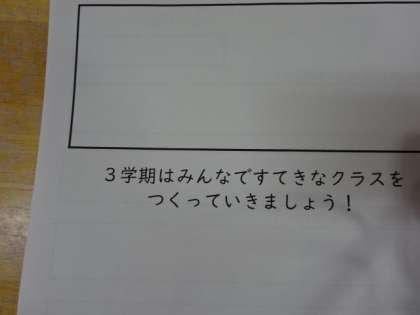 ３学期はみんなですてきなクラスを
つくっていきましょう！